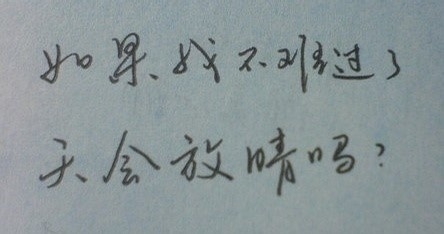 如果我不难过了
天会放晴吗?